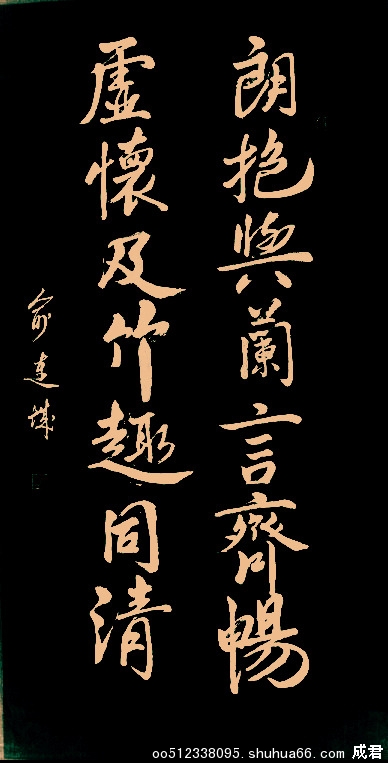 朗抱與蘭言齊暢
虛懷及竹趣同清
俞建
oo512338095. shuhua66. com 成君